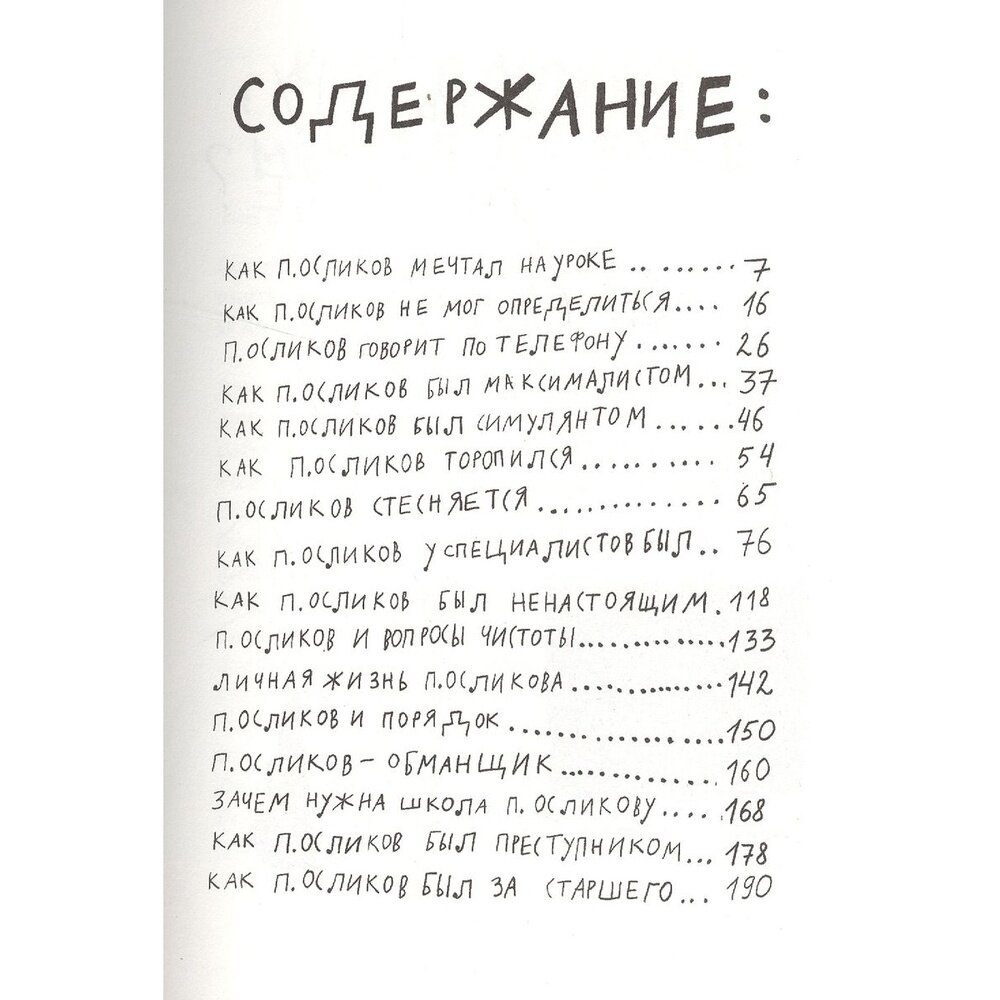 СОДЕРЖАНИЕ:
КАК П.ОСЛИКОВ МЕЧТАЛ НА УРОКЕ .. ....... 7
КАК П.ОСЛИКОВ НЕ МОГ ОПРЕДЕЛИТЬСЯ.... 16
П.ОСЛИКОВ ГОВОРИТ ПО ТЕЛЕФОНУ ....... 26
КАК П.ОСЛИКОВ БЫЛ МАКСИМАЛИСТОМ... 37
КАК П.ОСЛИКОВ БЫЛ СИМУЛЯНТОМ ......46
КАК П.ОСЛИКОВ ТОРОПИЛСЯ.......... 54
П.ОСЛИКОВ СТЕСНЯЕТСЯ ............. 65
КАК П.ОСЛИКОВ У СПЕЦИАЛИСТОВ БЫЛ.. 76
КАК П.ОСЛИКОВ БЫЛ НЕНАСТОЯЩИМ. 118
П.ОСЛИКОВ И ВОПРОСЫ ЧИСТОТЫ..............133
ЛИЧНАЯ ЖИЗНЬ П.ОСЛИКОВА..............142
П.ОСЛИКОВ И ПОРЯДОК ..................150
П.ОСЛИКОВ - ОБМАНЩИК ............... 160
ЗАЧЕМ НУЖНА ШКОЛА П. ОСЛИКОВУ.... 168
КАК П.ОСЛИКОВ БЫЛ ПРЕСТУПНИКОМ... 178
КАК П.ОСЛИКОВ БЫЛ ЗА СТАРШЕГО... 190